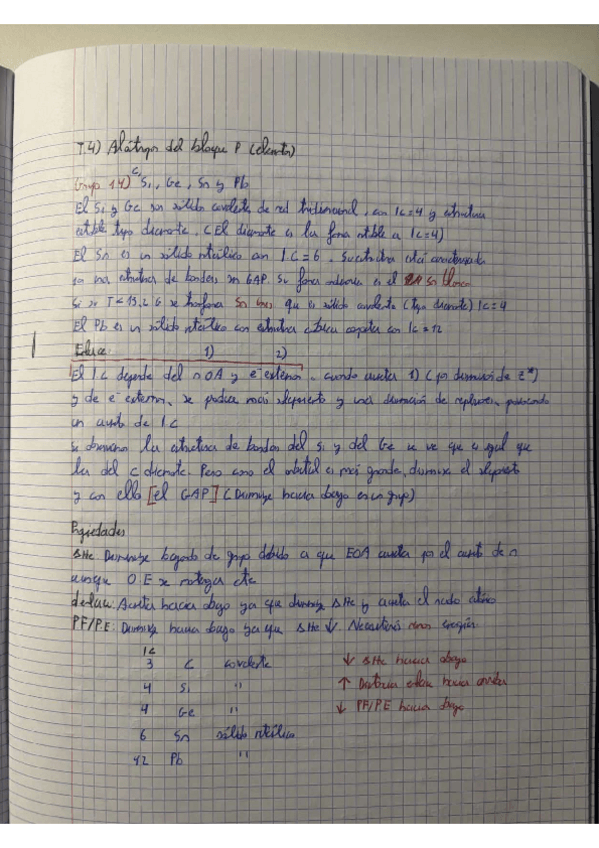 T.4) Alótropos del bloque P (elementos)
Grupo 14) C, Si, Ge, Sn y Pb
El Si y Ge son sólido covalente de red tridimensional, con IC=4 y estructura
estable tipo diamante, (El diamante es la forma estable a IC=4)
El Sn es un sólido metálico con IC=6. Su estructura está caracterizada
por una estructura de bandas sin GAP. Su forma ordinaria es el Sn blanco
Si se T<13.2 G se transforma Sn gris que es sólido covalente (tipo diamante) IC=4
El Pb es un sólido metálico con estructura cúbica compacta con IC=12
1) 2)
El IC depende del n OA y e⁻ externos. cuando aumenta 1) (por disminución de Z*)
y de e⁻ externos, se produce más solapamiento y una disminución de repulsiones, provocando
un aumento de IC
Si observamos la estructura de bandas del Si y del Ge se ve que es igual que
la del C diamante. Pero como el orbital es más grande, disminuye el solapamiento
y con ello [el GAP] (Disminuye hacia abajo en un grupo)
Propiedades
ΔHe Disminuye bajando de grupo debido a que EOA aumenta por el aumento de n
aunque O.E se mantenga cte
Aumenta hacia abajo ya que disminuye ΔHe y aumenta el radio atómico
PF/P.E: Disminuye hacia abajo ya que ΔHe ↓. Necesitarás menos energía
IC
3 C covalente ↓ ΔHe hacia abajo
4 Si " ↑ Distancia enlace hacia
4 Ge " ↓ PF/P.E hacia abajo
6 Sn sólido metálico
12 Pb "